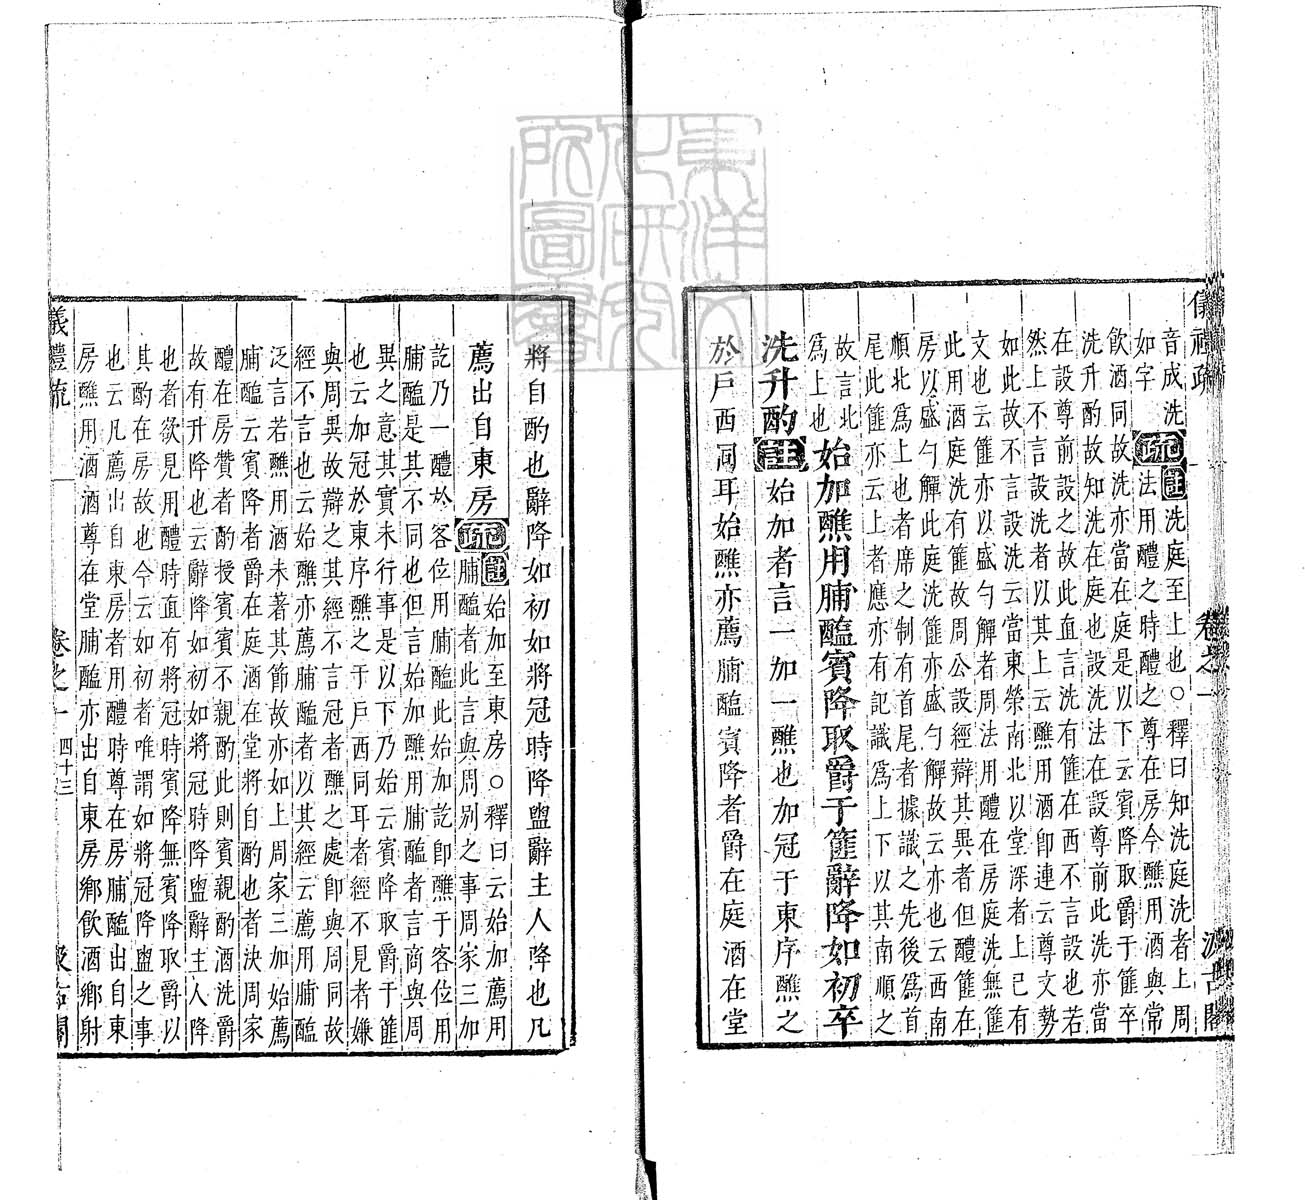 儀禮疏 卷之一 汲古閣
音成洗
如字疏註洗庭至上也○釋曰知洗庭洗者上周
法用醴之時醴之尊在房今醮用酒與常
飲酒同故洗亦當在庭是以下云賓降取爵于篚卒
洗升酌故知洗在庭也設洗法在設尊前此洗亦當
在設尊前設之故此直言洗有篚在西不言設也若
然上不言設洗者以其上云醮用酒卽連云尊文勢
如此故不言設洗云當東榮南北以堂深者上已有
文也云篚亦以盛勺觶者周法用醴在房庭洗無篚
此用酒庭洗有篚故周公設經辯其異者但醴篚在
房以盛勺觶此庭洗篚亦盛勺觶故云亦也云西南
順北爲上也者席之制有首尾者據識之先後爲首
尾此篚亦云上者應亦有記識爲上下以其南順之
故言北
爲上也
始加醮用脯醢賓降取爵于篚辭降如初卒
洗升酌註始加者言一加一醮也加冠于東序醮之
於戶西同耳始醮亦薦脯醢賓降者爵在庭酒在堂
將自酌也辭降如初如將冠時降盥辭主人降也凡
薦出自東房疏註始加至東房○釋曰云始加薦用
脯醢者此言與周別之事周家三加
訖乃一醴於客位用脯醢此始加訖卽醮于客位用
脯醢是其不同也但言始加醮用脯醢者言商與周
異之意其實未行事是以下乃始云賓降取爵于篚
也云加冠於東序醮之于戶西同耳者經不見者嫌
與周異故辯之其經不言冠者醮之處卽與周同故
經不言也云始醮亦薦脯醢者以其經云薦用脯醢
泛言若醮用酒未著其節故亦如上周家三加始薦
脯醢云賓降者爵在庭酒在堂將自酌也者決周家
醴在房贊者酌授賓賓不親酌此則賓親酌酒洗爵
故有升降也云辭降如初如將冠時降盥辭主人降
也者欲見用醴時直有將冠時賓降無賓降取爵以
其酌在房故也今云如初者唯謂如將冠降盥之事
也云凡薦出自東房者用醴時尊在房脯醢出自東
房醮用酒酒尊在堂脯醢亦出自東房鄉飲酒鄉射
儀禮疏 卷之一 四十三 汲古閣
東洋文化研究所圖書